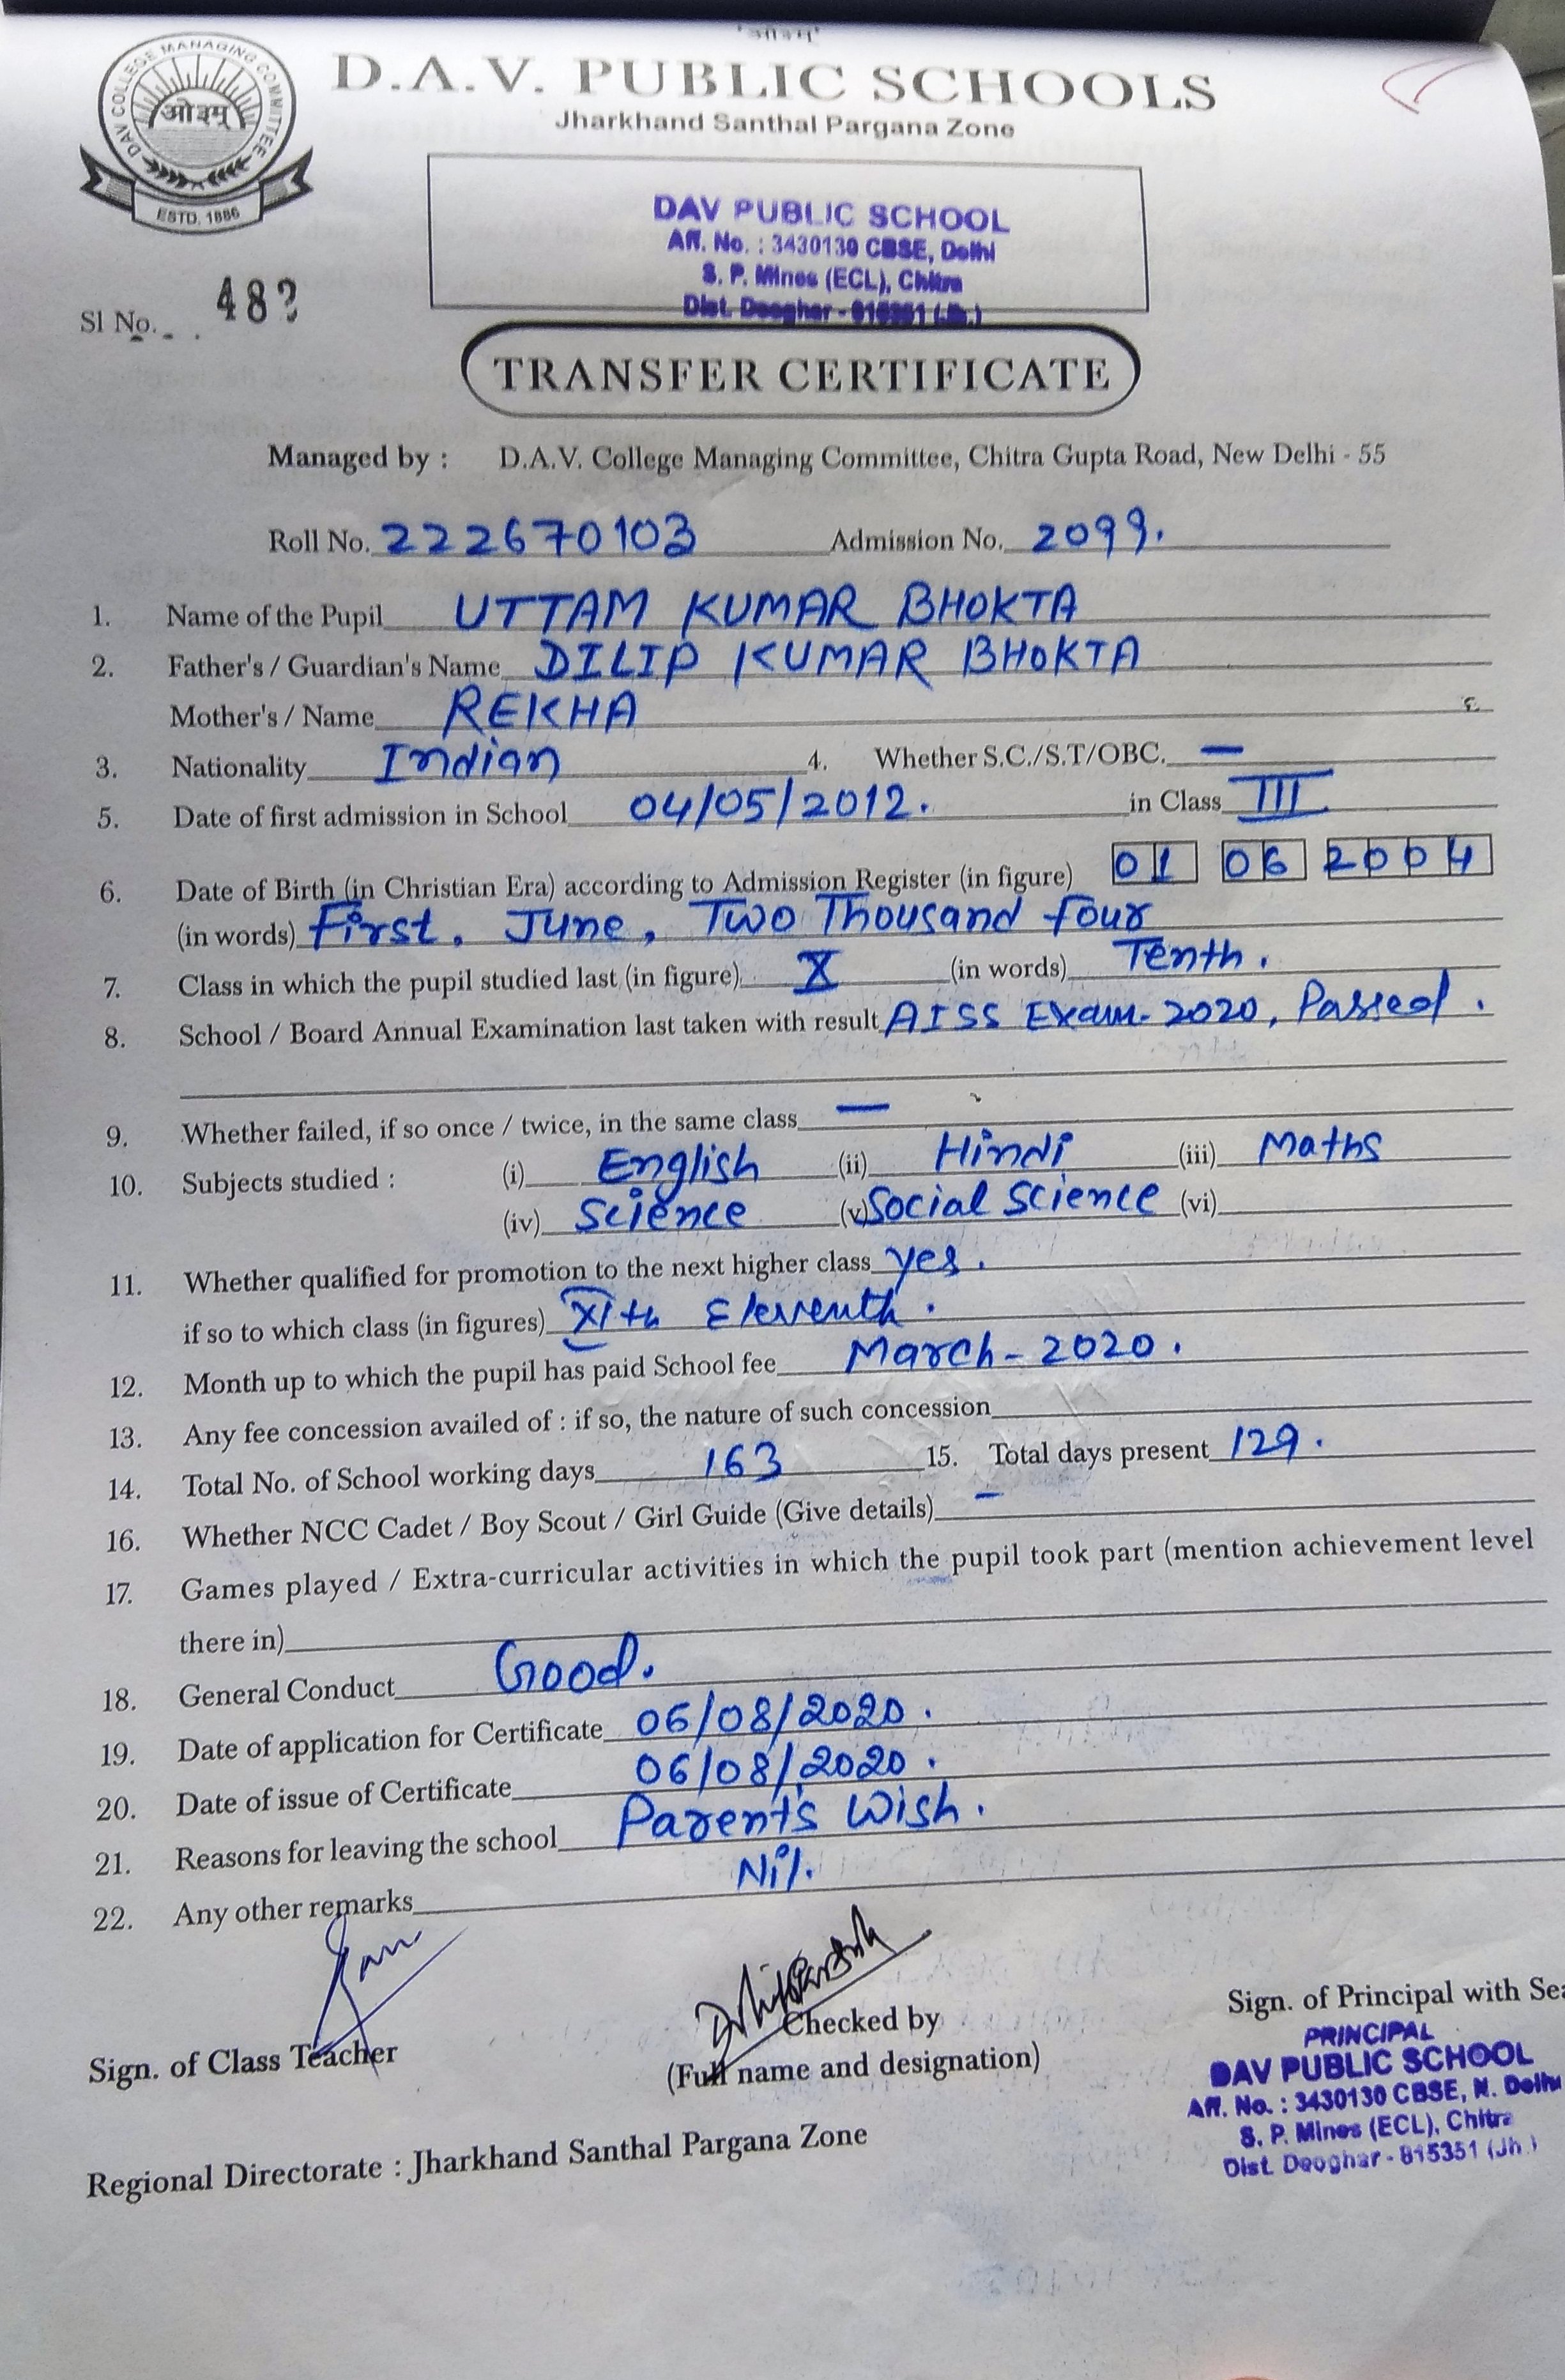 'ओ३म्'
DAV COLLEGE MANAGING COMMITTEE
ओ३म्
ESTD. 1886
D.A.V. PUBLIC SCHOOLS
Jharkhand Santhal Pargana Zone
DAV PUBLIC SCHOOL
Aff. No. : 3430130 CBSE, Delhi
S. P. Mines (ECL), Chitra
Dist. Deoghar - 815351 (Jh.)
Sl No.
TRANSFER CERTIFICATE
Managed by : D.A.V. College Managing Committee, Chitra Gupta Road, New Delhi - 55
Roll No. 222670103 Admission No. 2099.
1. Name of the Pupil UTTAM KUMAR BHOKTA
2. Father's / Guardian's Name DILIP KUMAR BHOKTA
Mother's / Name REKHA
3. Nationality Indian 4. Whether S.C./S.T/OBC. —
5. Date of first admission in School 04/05/2012. in Class III
6. Date of Birth (in Christian Era) according to Admission Register (in figure) 01 06 2004
(in words) First, June, Two Thousand four
7. Class in which the pupil studied last (in figure) X (in words) Tenth.
8. School / Board Annual Examination last taken with result AISS Exam-2020, Passed.
9. Whether failed, if so once / twice, in the same class —
10. Subjects studied : (i) English (ii) Hindi (iii) Maths
(iv) Science (v) Social Science (vi)
11. Whether qualified for promotion to the next higher class yes.
if so to which class (in figures) XIth Eleventh.
12. Month up to which the pupil has paid School fee March-2020.
13. Any fee concession availed of : if so, the nature of such concession
14. Total No. of School working days 163 15. Total days present 129.
16. Whether NCC Cadet / Boy Scout / Girl Guide (Give details) -
17. Games played / Extra-curricular activities in which the pupil took part (mention achievement level
there in)
18. General Conduct Good.
19. Date of application for Certificate 06/08/2020.
20. Date of issue of Certificate 06/08/2020.
21. Reasons for leaving the school Parent's Wish.
22. Any other remarks Nil.
Sign. of Class Teacher
Checked by
(Full name and designation)
Sign. of Principal with Sea
PRINCIPAL
DAV PUBLIC SCHOOL
Aff. No. : 3430130 CBSE, N. Delhi
S. P. Mines (ECL), Chitra
Dist. Deoghar - 815351 (Jh.)
Regional Directorate : Jharkhand Santhal Pargana Zone